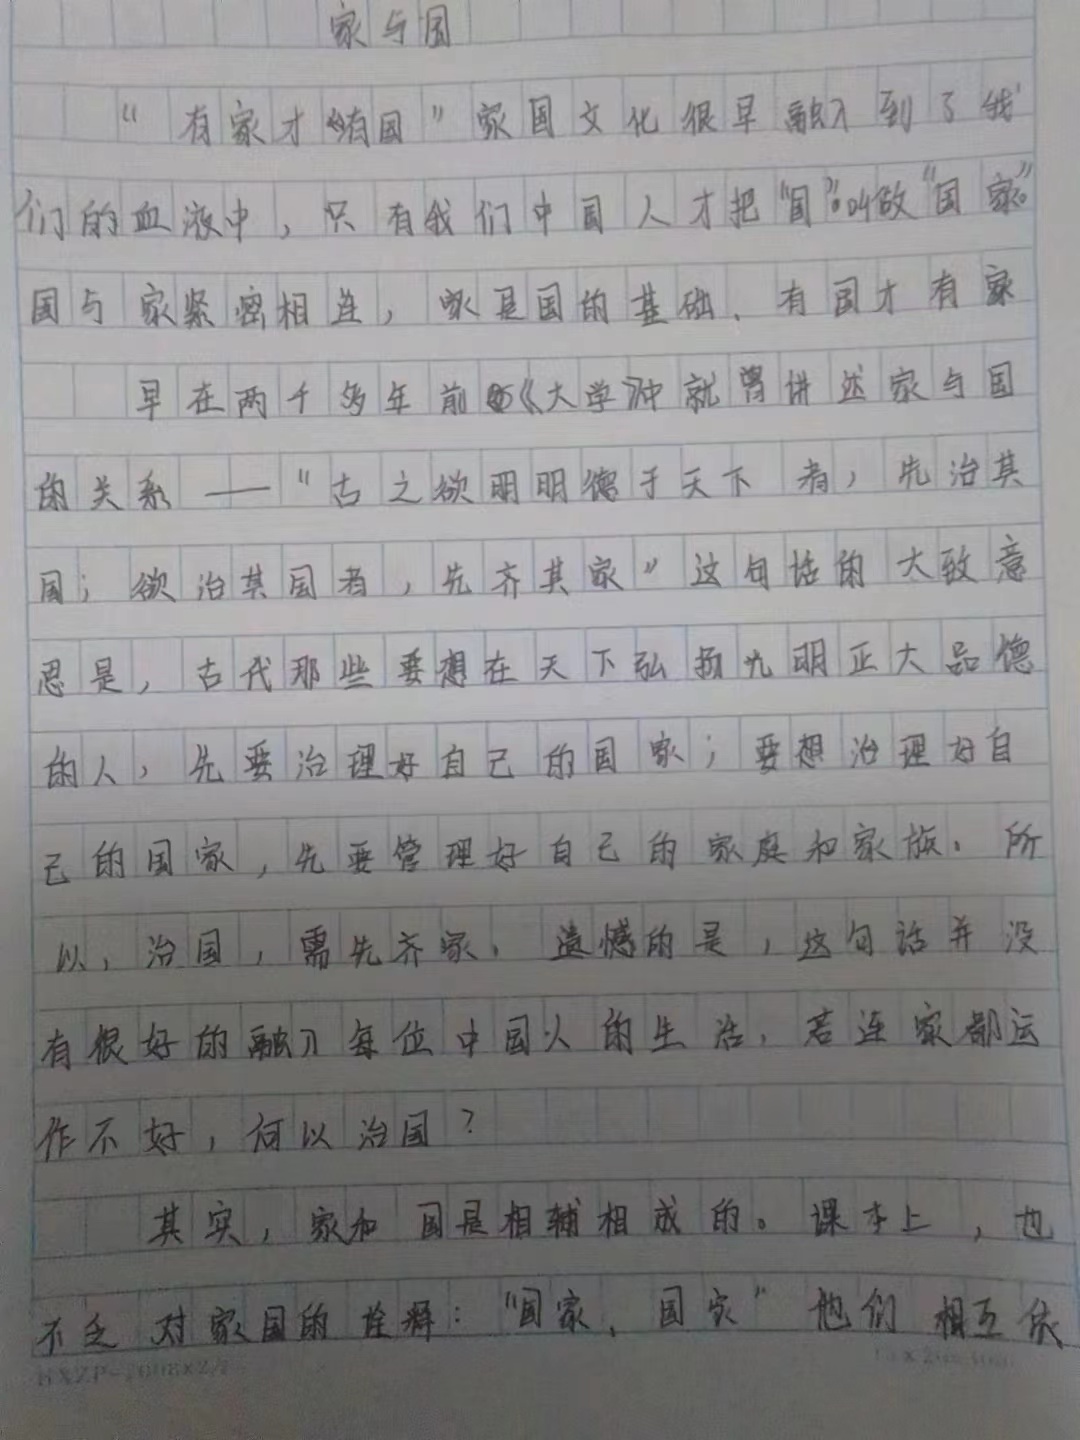 家与国
“有家才有国”家国文化很早融入到了我
们的血液中，只有我们中国人才把“国”叫做“国家”。
国与家紧密相连，家是国的基础、有国才有家
早在两千多年前《大学》中就曾讲述家与国
的关系——“古之欲明明德于天下者，先治其
国；欲治其国者，先齐其家”这句话的大致意
思是，古代那些要想在天下弘扬光明正大品德
的人，先要治理好自己的国家；要想治理好自
己的国家，先要管理好自己的家庭和家族。所
以，治国，需先齐家。遗憾的是，这句话并没
有很好的融入每位中国人的生活，若连家都运
作不好，何以治国？
其实，家和国是相辅相成的。课本上，也
不乏对家国的诠释：“国家、国家”他们相互依